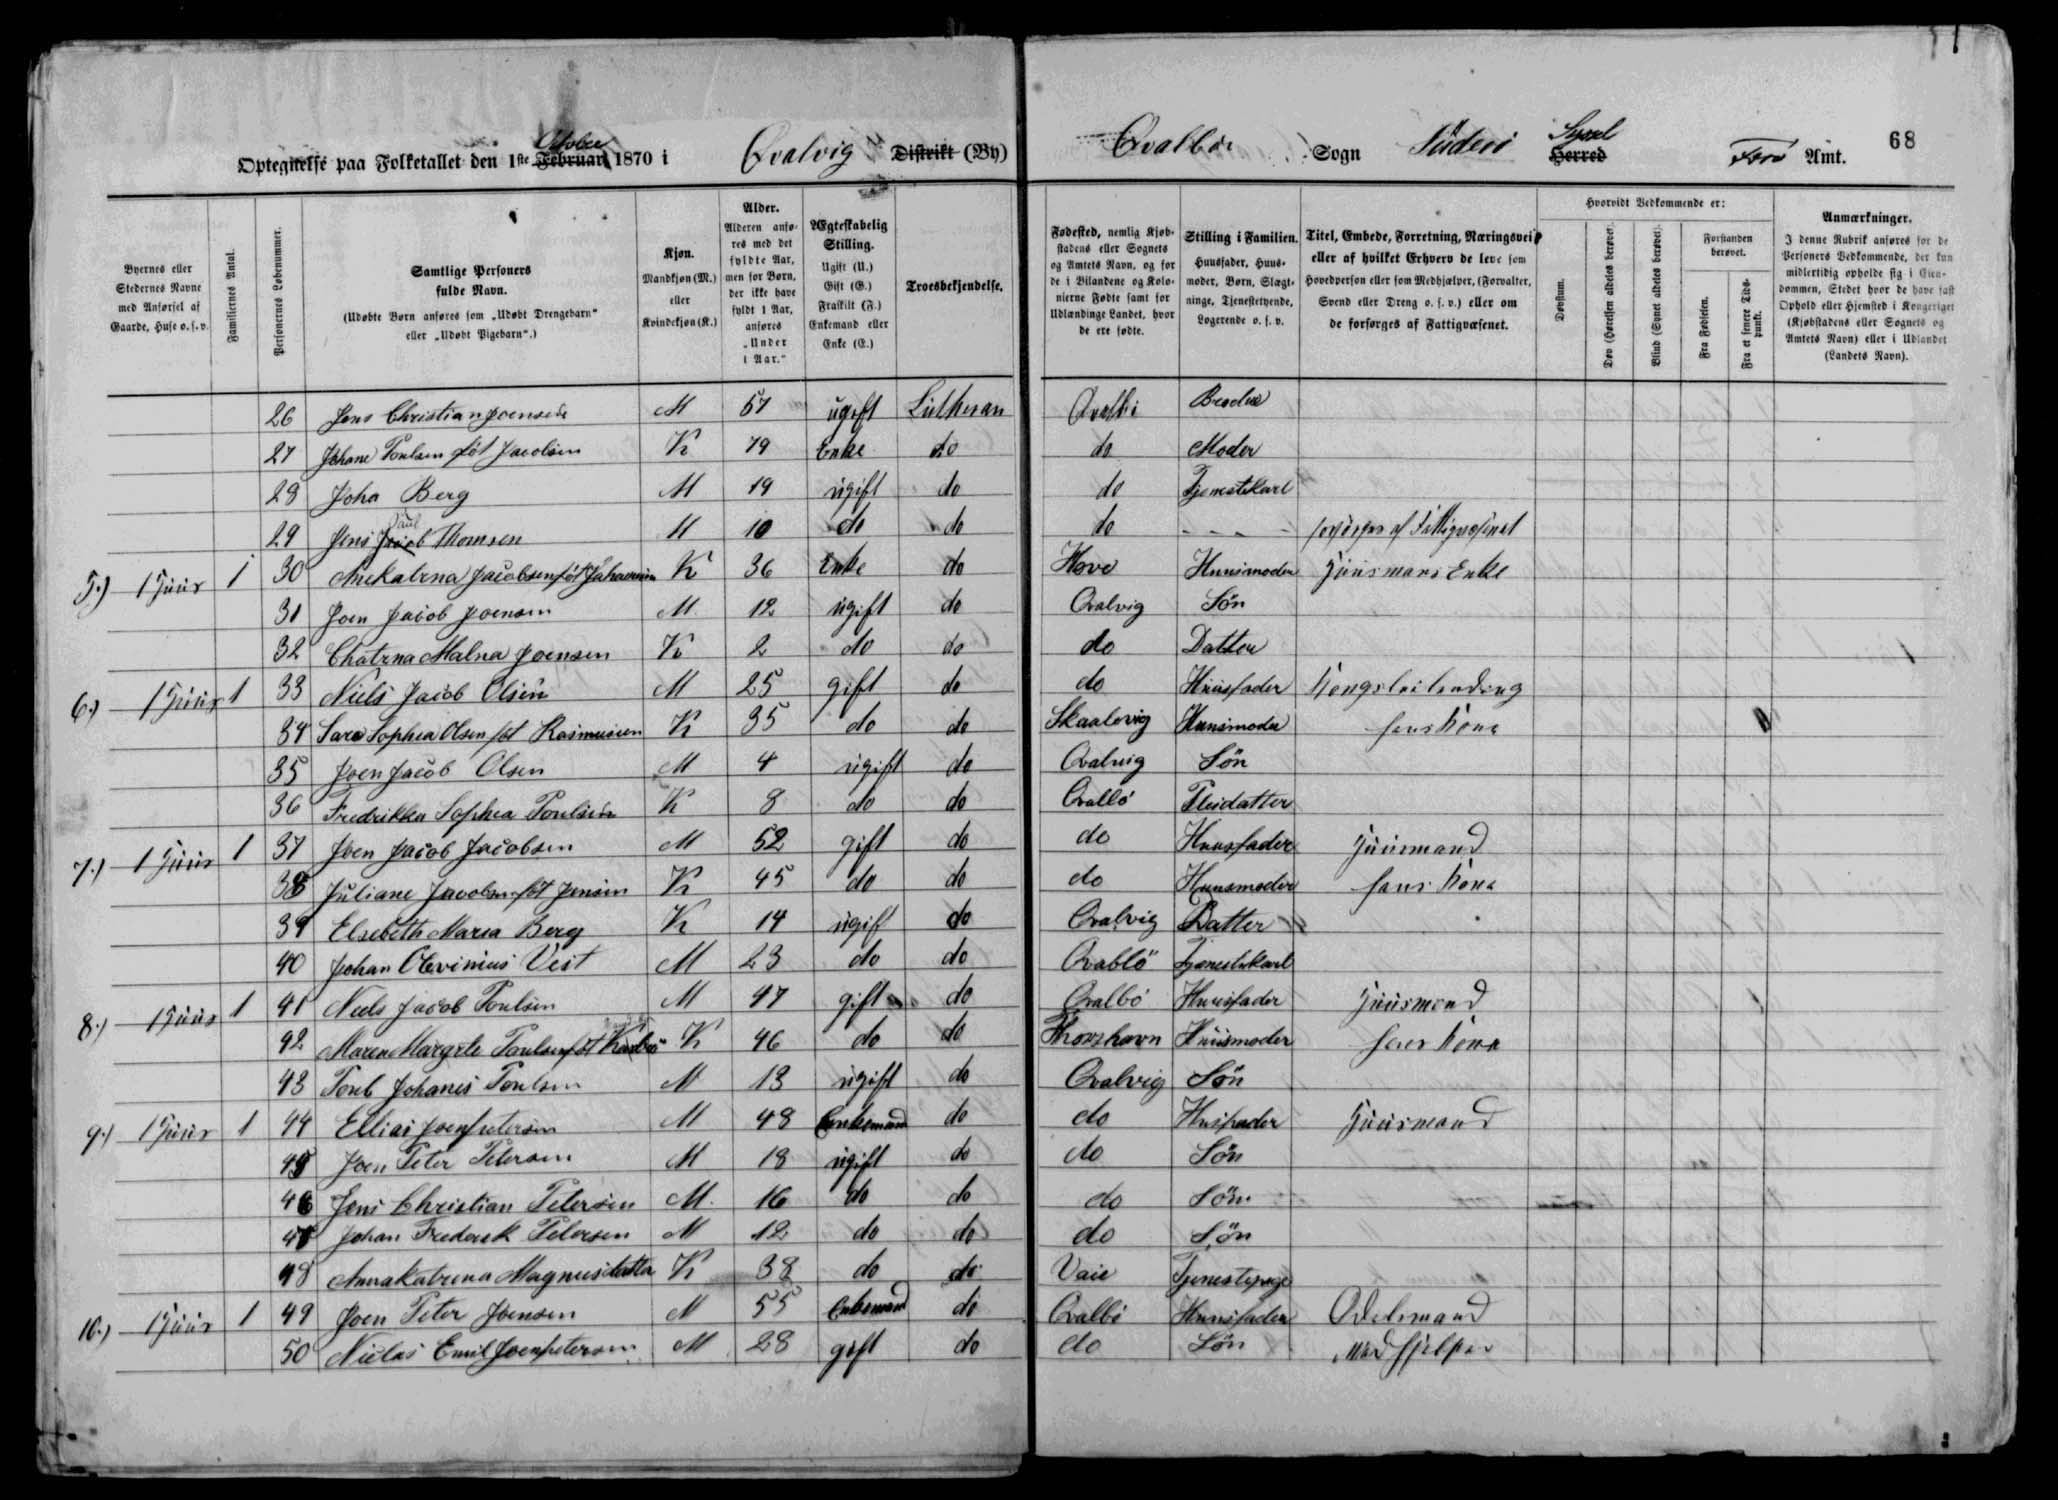 Optegnelse paa Folketallet den 1ste Februar October 1870 i Qvalvig Distrikt (By)
Qvalbø Sogn Süderö Herred Syssel Færö Amt. 68
Byernes eller Stedernes Navne med Anførsel af Gaarde, Huse o. s. v.
Familiernes Antal.
Personernes Løbenummer.
Samtlige Personers fulde Navn. (Udøbte Børn anføres som „Udøbt Drengebarn“ eller „Udøbt Pigebarn“.)
Kjøn. Mandkjøn (M.) eller Kvindekjøn (K.)
Alder. Alderen anføres med det fyldte Aar, men for Børn, der ikke have fyldt 1 Aar, anføres „Under 1 Aar.“
Ægteskabelig Stilling. Ugift (U.) Gift (G.) Fraskilt (F.) Enkemand eller Enke (E.)
Troesbekjendelse.
Fødested, nemlig Kjøbstadens eller Sognets og Amtets Navn, og for de i Bilandene og Kolonierne Fødte samt for Udlændinge Landet, hvor de ere fødte.
Stilling i Familien. Huusfader, Huusmoder, Børn, Slægtninge, Tjenestetyende, Logerende o. s. v.
Titel, Embede, Forretning, Næringsvei eller af hvilket Erhverv de leve som Hovedperson eller som Medhjælper, (Forvalter, Svend eller Dreng o. s. v.) eller om de forsørges af Fattigvæsenet.
Hvorvidt Vedkommende er:
Døvstum.
Døv (Hørelsen aldeles berøvet).
Blind (Synet aldeles berøvet).
Forstanden berøvet.
Fra Fødselen.
Fra et senere Tidspunkt.
Anmærkninger. I denne Rubrik anføres for de Personers Vedkommende, der kun midlertidig opholde sig i Eiendommen, Stedet hvor de have fast Ophold eller Hjemsted i Kongeriget (Kjøbstadens eller Sognets og Amtets Navn) eller i Udlandet (Landets Navn).
26 Jens Christian Joensen M 57 ugift Lutheran Qvalbø Broder
27 Johane Poulsen föt Jacobsen K 79 Enke do do Moder
28 Joha Berg M 19 ugift do do Tjenstekarl
29 Jens Jacob Paul Thomsen M 10 do do do - - - forsörges af Fattigvæsenet
5.) 1 Huus 1 30 Anekatrna Jacobsen föt Johannesen K 36 Enke do Hove Huusmoder Huusmans Enke
31 Joen Jacob Joensen M. 12 ugift do Qvalvig Sön
32 Chatrna Malna Joensen K 2 do do do Datter
6.) 1 Huus 1 33 Niels Jacob Olsen M 25 gift do do Huusfader Kongsleilending
34 Sara Sophea Olsen föt Rasmusen K 35 do do Skaalevig Huusmoder hans Kone
35 Joen Jacob Olsen M 4 ugift do Qvalvig Sön
36 Fredrikka Sophea Poulsen K 8 do do Qvalbö Pleidatter
7.) 1 Huus 1 37 Joen Jacob Jacobsen M 52 gift do do Huusfader Huusmand
38 Juliane Jacobsen föt Jensen K 45 do do do Huusmoder hans Kone
39 Elsebeth Marea Berg K 14 ugift do Qvalvig Datter
40 Johan Olevinius Vest M 23 do do Qvablö Tjenestekarl
8.) 1 Huus 1 41 Niels Jacob Poulsen M 47 gift do Qvalbö Huusfader Huusmand
42 Maren Margrete Poulsen föt K 46 do do Thorshavn Huusmoder hans Kone
43 Poul Johanes Poulsen M 13 ugift do Qvalvig Sön
9.) 1 Huus 1 44 Ellias Joenpetersen M 48 Enkemand do do Husfader Huusmand
45 Joen Peter Petersen M 18 ugift do do Sön
46 Jens Christian Petersen M. 16 do do do Sön
47 Johan Frederik Petersen M 12 do do do Sön
48 Annakatrina Magnusdatter K 38 do do Vaie Tjenestepige
10.) 1 Huus 1 49 Joen Peter Joensen M 55 Enkemand do Qvalbö Huusfader Odelsmand
50 Nielas Emil Joenpetersen M 28 gift do do Sön Medhjelper